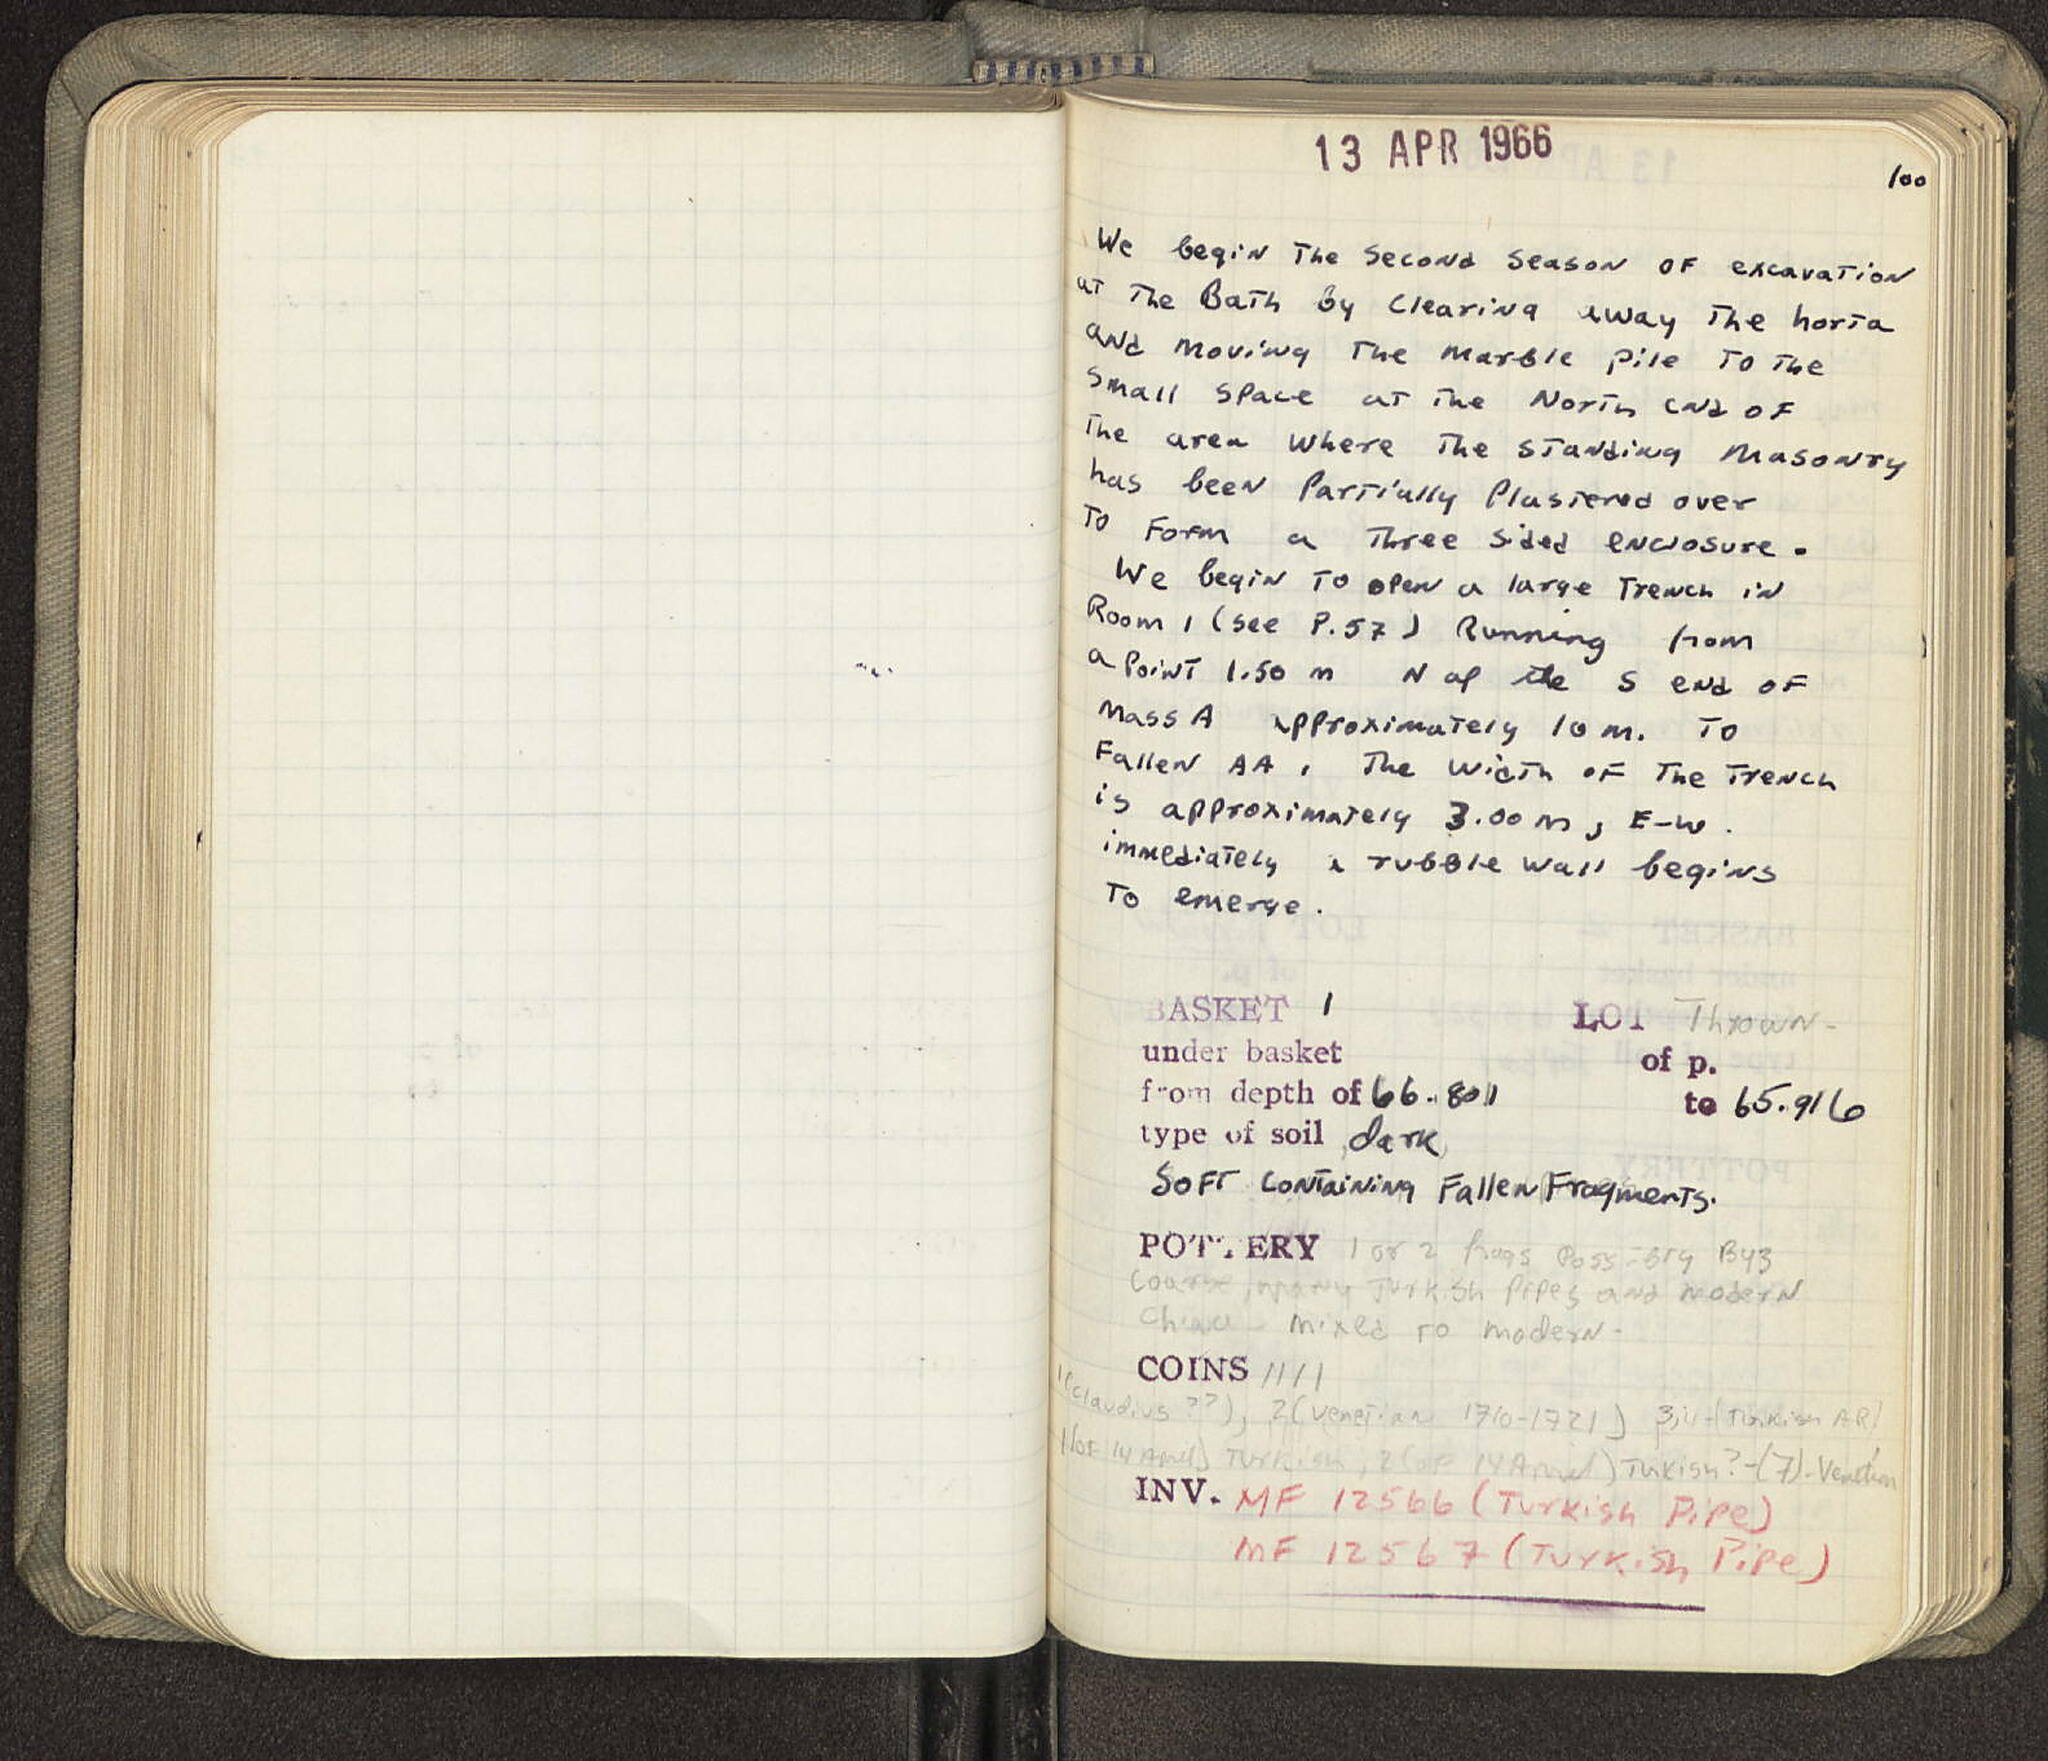 13 APR 1966
100
We begin The Second Season OF excavation
at The Bath by Clearing away The horta
and moving The marble pile To The
small space at The North end of
The area where The standing Masonry
has been Partially Plastered over
To Form a Three sided enclosure.
We begin To open a large Trench in
Room 1 (see P.57) Running from
a Point 1.50 m N of the S end OF
Mass A approximately 10 m. To
Fallen AA. The Width OF The Trench
is approximately 3.00 m, E-W.
immediately a rubble wall begins
To emerge.
BASKET 1 LOT Thrown-
under basket of p.
from depth of 66.801 to 65.916
type of soil dark
SOFT Containing Fallen Fragments.
POTTERY 1 or 2 frags Possibly Byz
Coarse, many Turkish Pipes and modern
China - mixed To modern.
COINS ////
1(Claudius ??), 2(Venetian 1710-1721) 3,4-(Turkish AR)
1(of 14 April) Turkish, 2(of 14 April) Turkish? -(7)-Venetian
INV. MF 12566 (Turkish Pipe)
MF 12567 (Turkish Pipe)